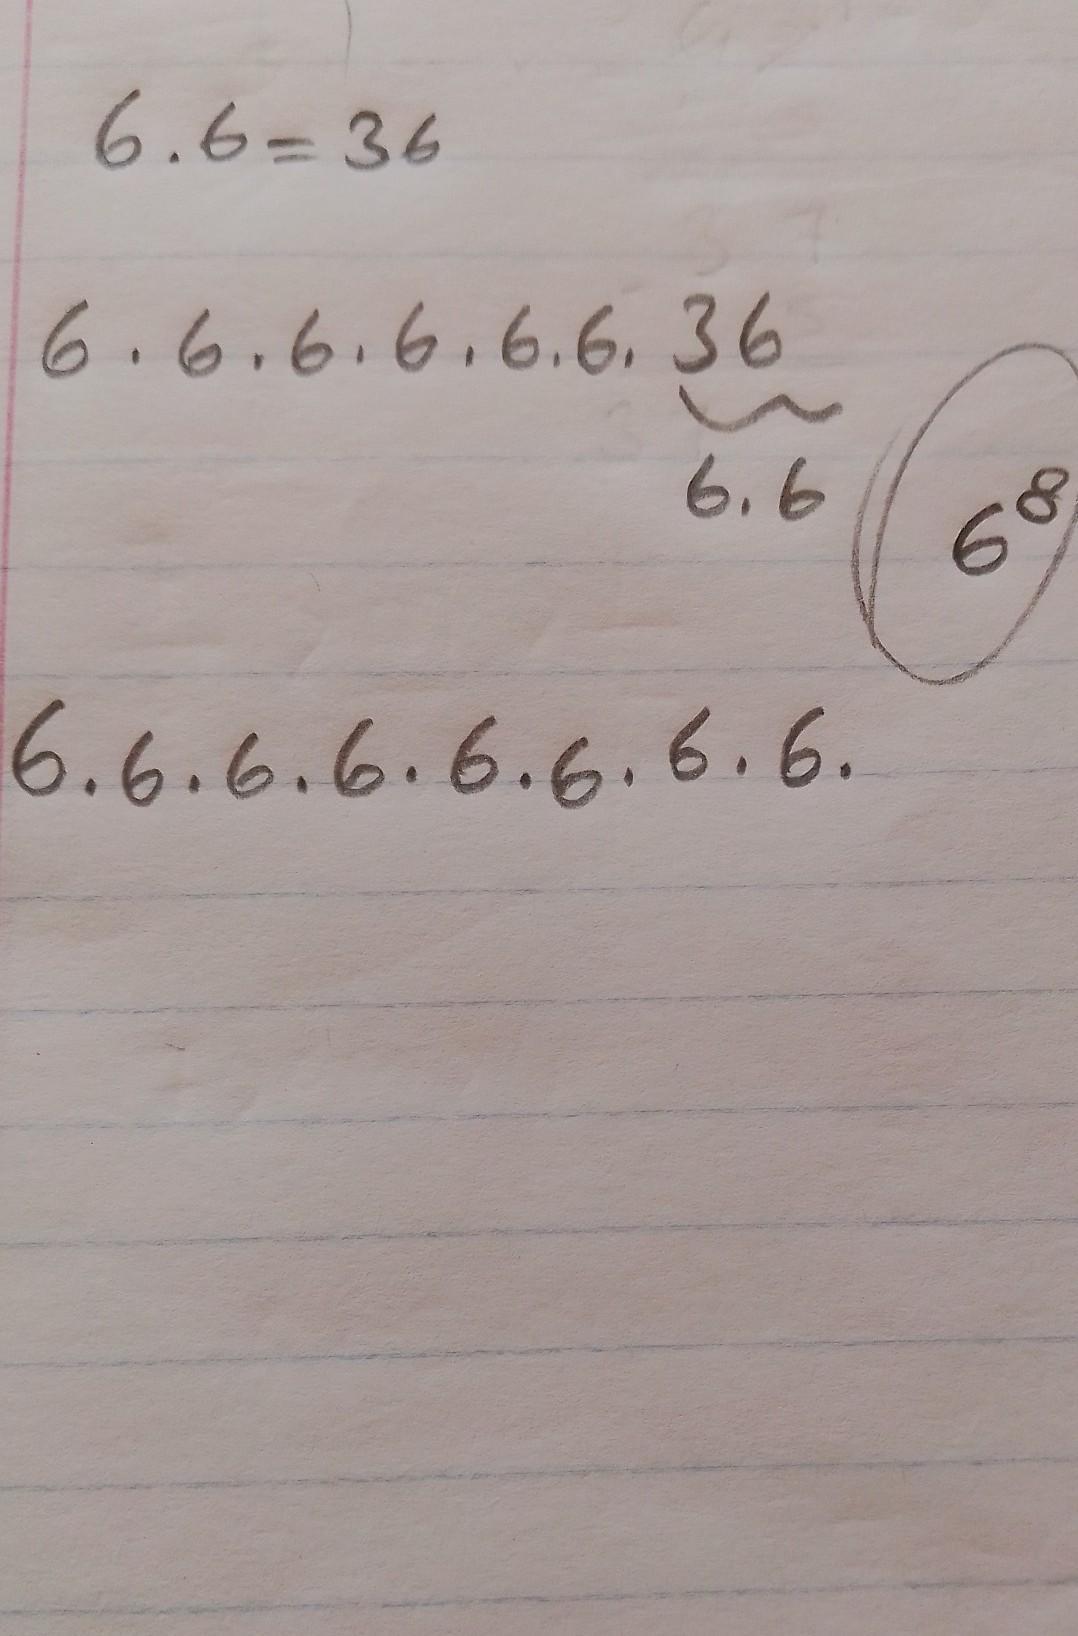 6 . 6 = 36
6 . 6 . 6 . 6 . 6 . 6 . 36
6 . 6
6⁸
6 . 6 . 6 . 6 . 6 . 6 . 6 . 6 .